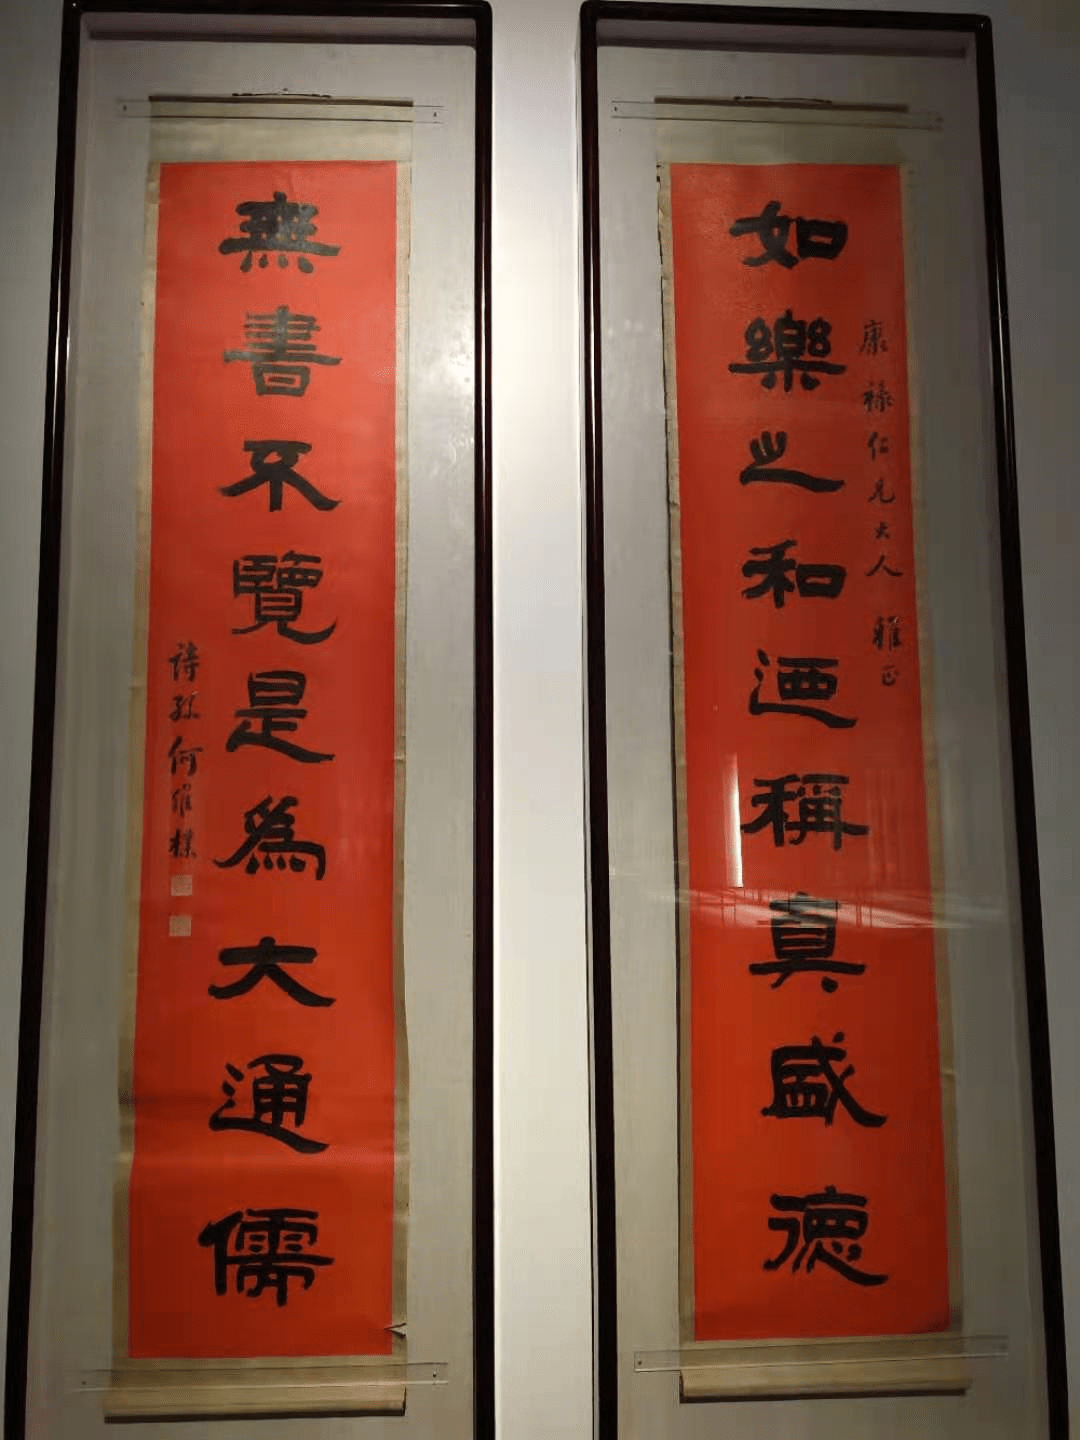 康祿仁兄大人雅正
如樂之和迺稱真盛德
無書不覽是為大通儒
詩孫何維樸